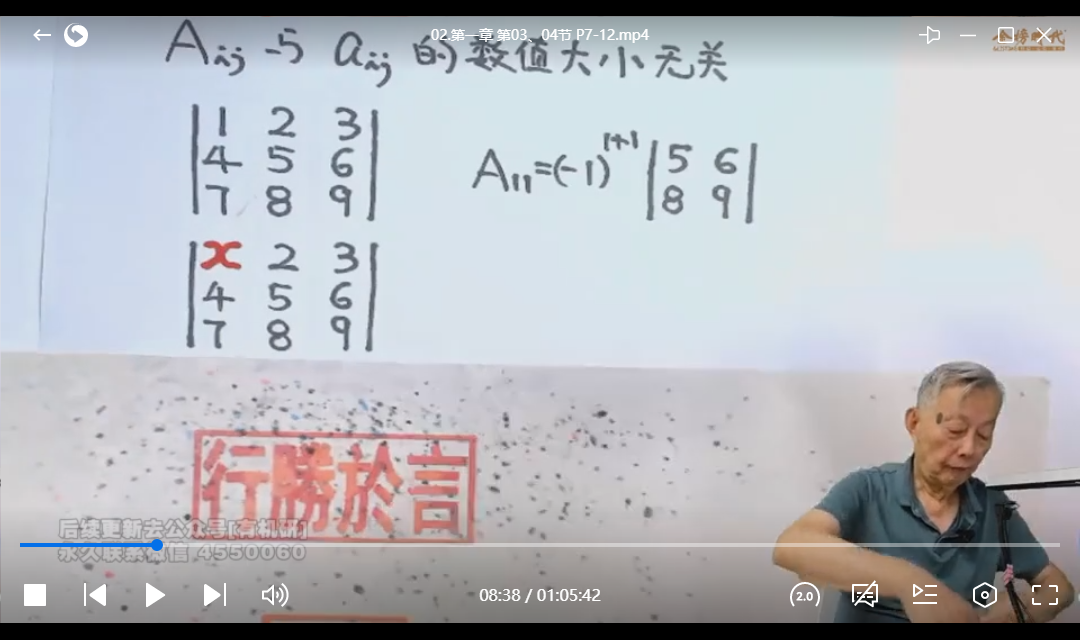 02.第一章 第03、04节 P7-12.mp4
Aij 与 aij 的数值大小无关
1 2 3
4 5 6
7 8 9
A11=(-1)1+1 |5 6|
|8 9|
x 2 3
4 5 6
7 8 9
行勝於言
后续更新去公众号[有机研]
永久联系微信 4550060
08:38 / 01:05:42
2.0